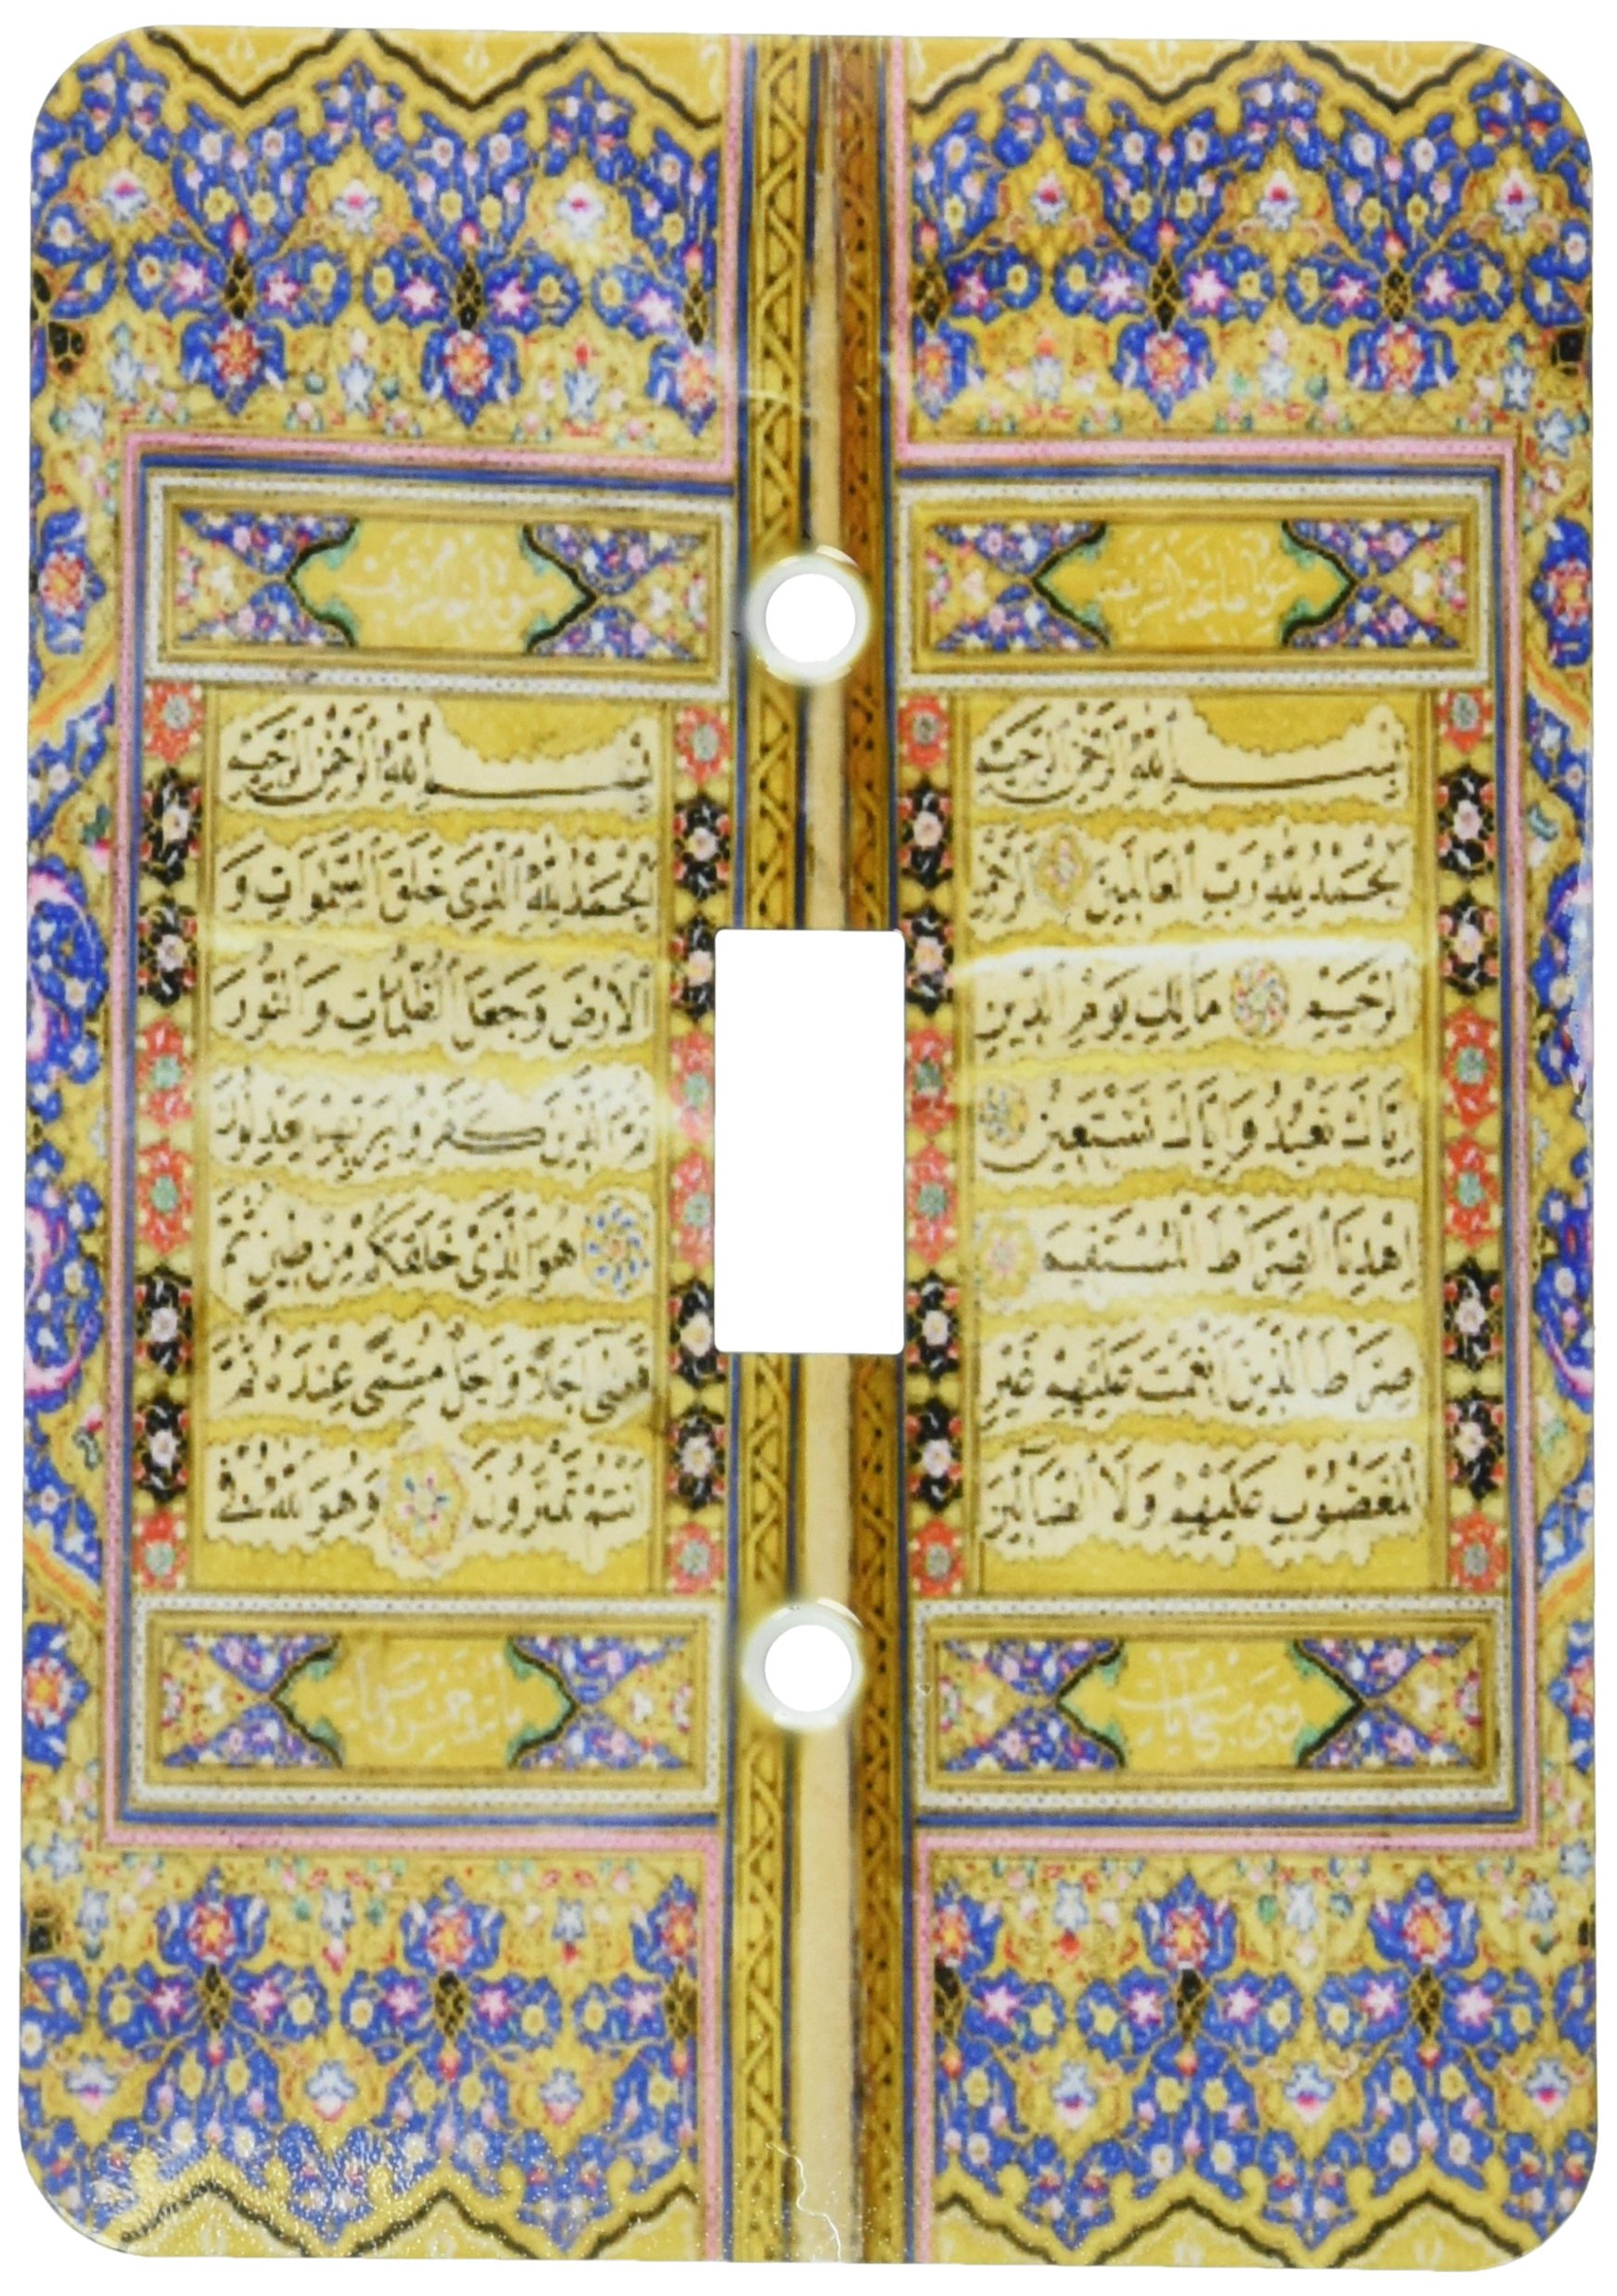 سورة فاتحة الشريفة
بسم الله الرحمن الرحيم
الحمد لله رب العالمين الرحمن
الرحيم مالك يوم الدين
إياك نعبد وإياك نستعين
اهدنا الصراط المستقيم
صراط الذين أنعمت عليهم غير
المغضوب عليهم ولا الضالين
وهي سبع آيات
بسم الله الرحمن الرحيم
الحمد لله الذي خلق السموات و
الارض وجعل الظلمات والنور
ثم الذين كفروا بربهم يعدلون
هو الذي خلقكم من طين ثم
قضى أجلا وأجل مسمى عنده ثم
أنتم تمترون وهو الله في